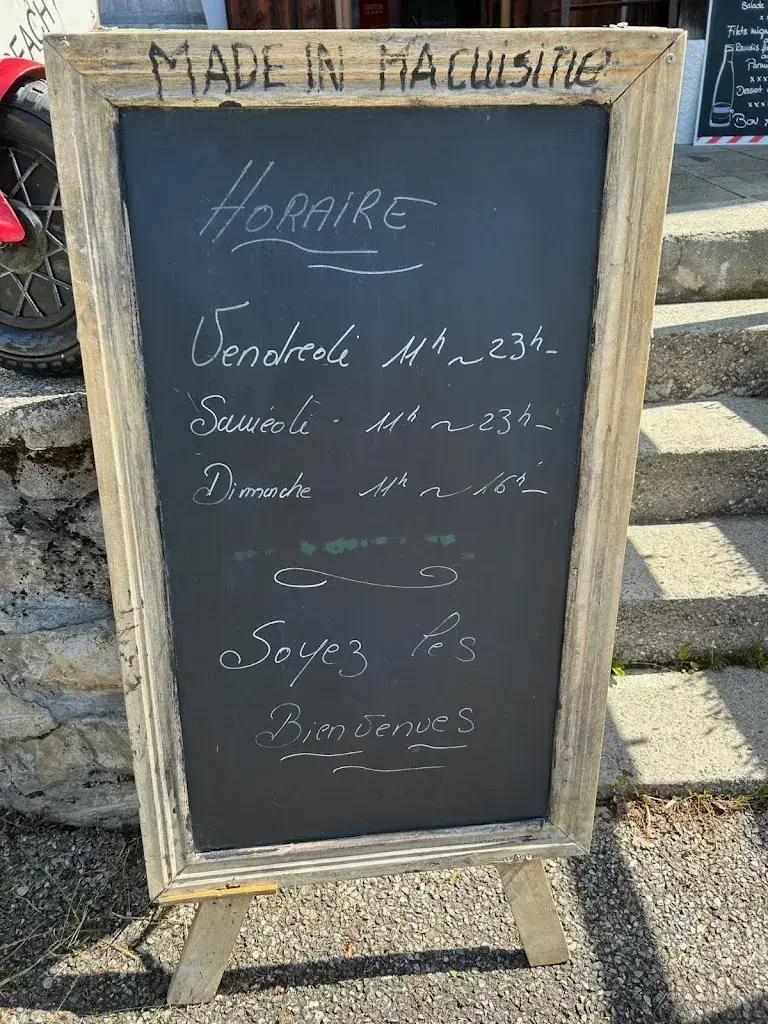 EACH
MADE IN MA CUISINE
HORAIRE
Vendredi 11h ~ 23h-
Samedi - 11h ~ 23h-
Dimanche 11h ~ 16h-
Soyez les
Bienvenues
Salade
Filets mign
Raviolis
Parmi
x x x
Dessert
x x x
Bon